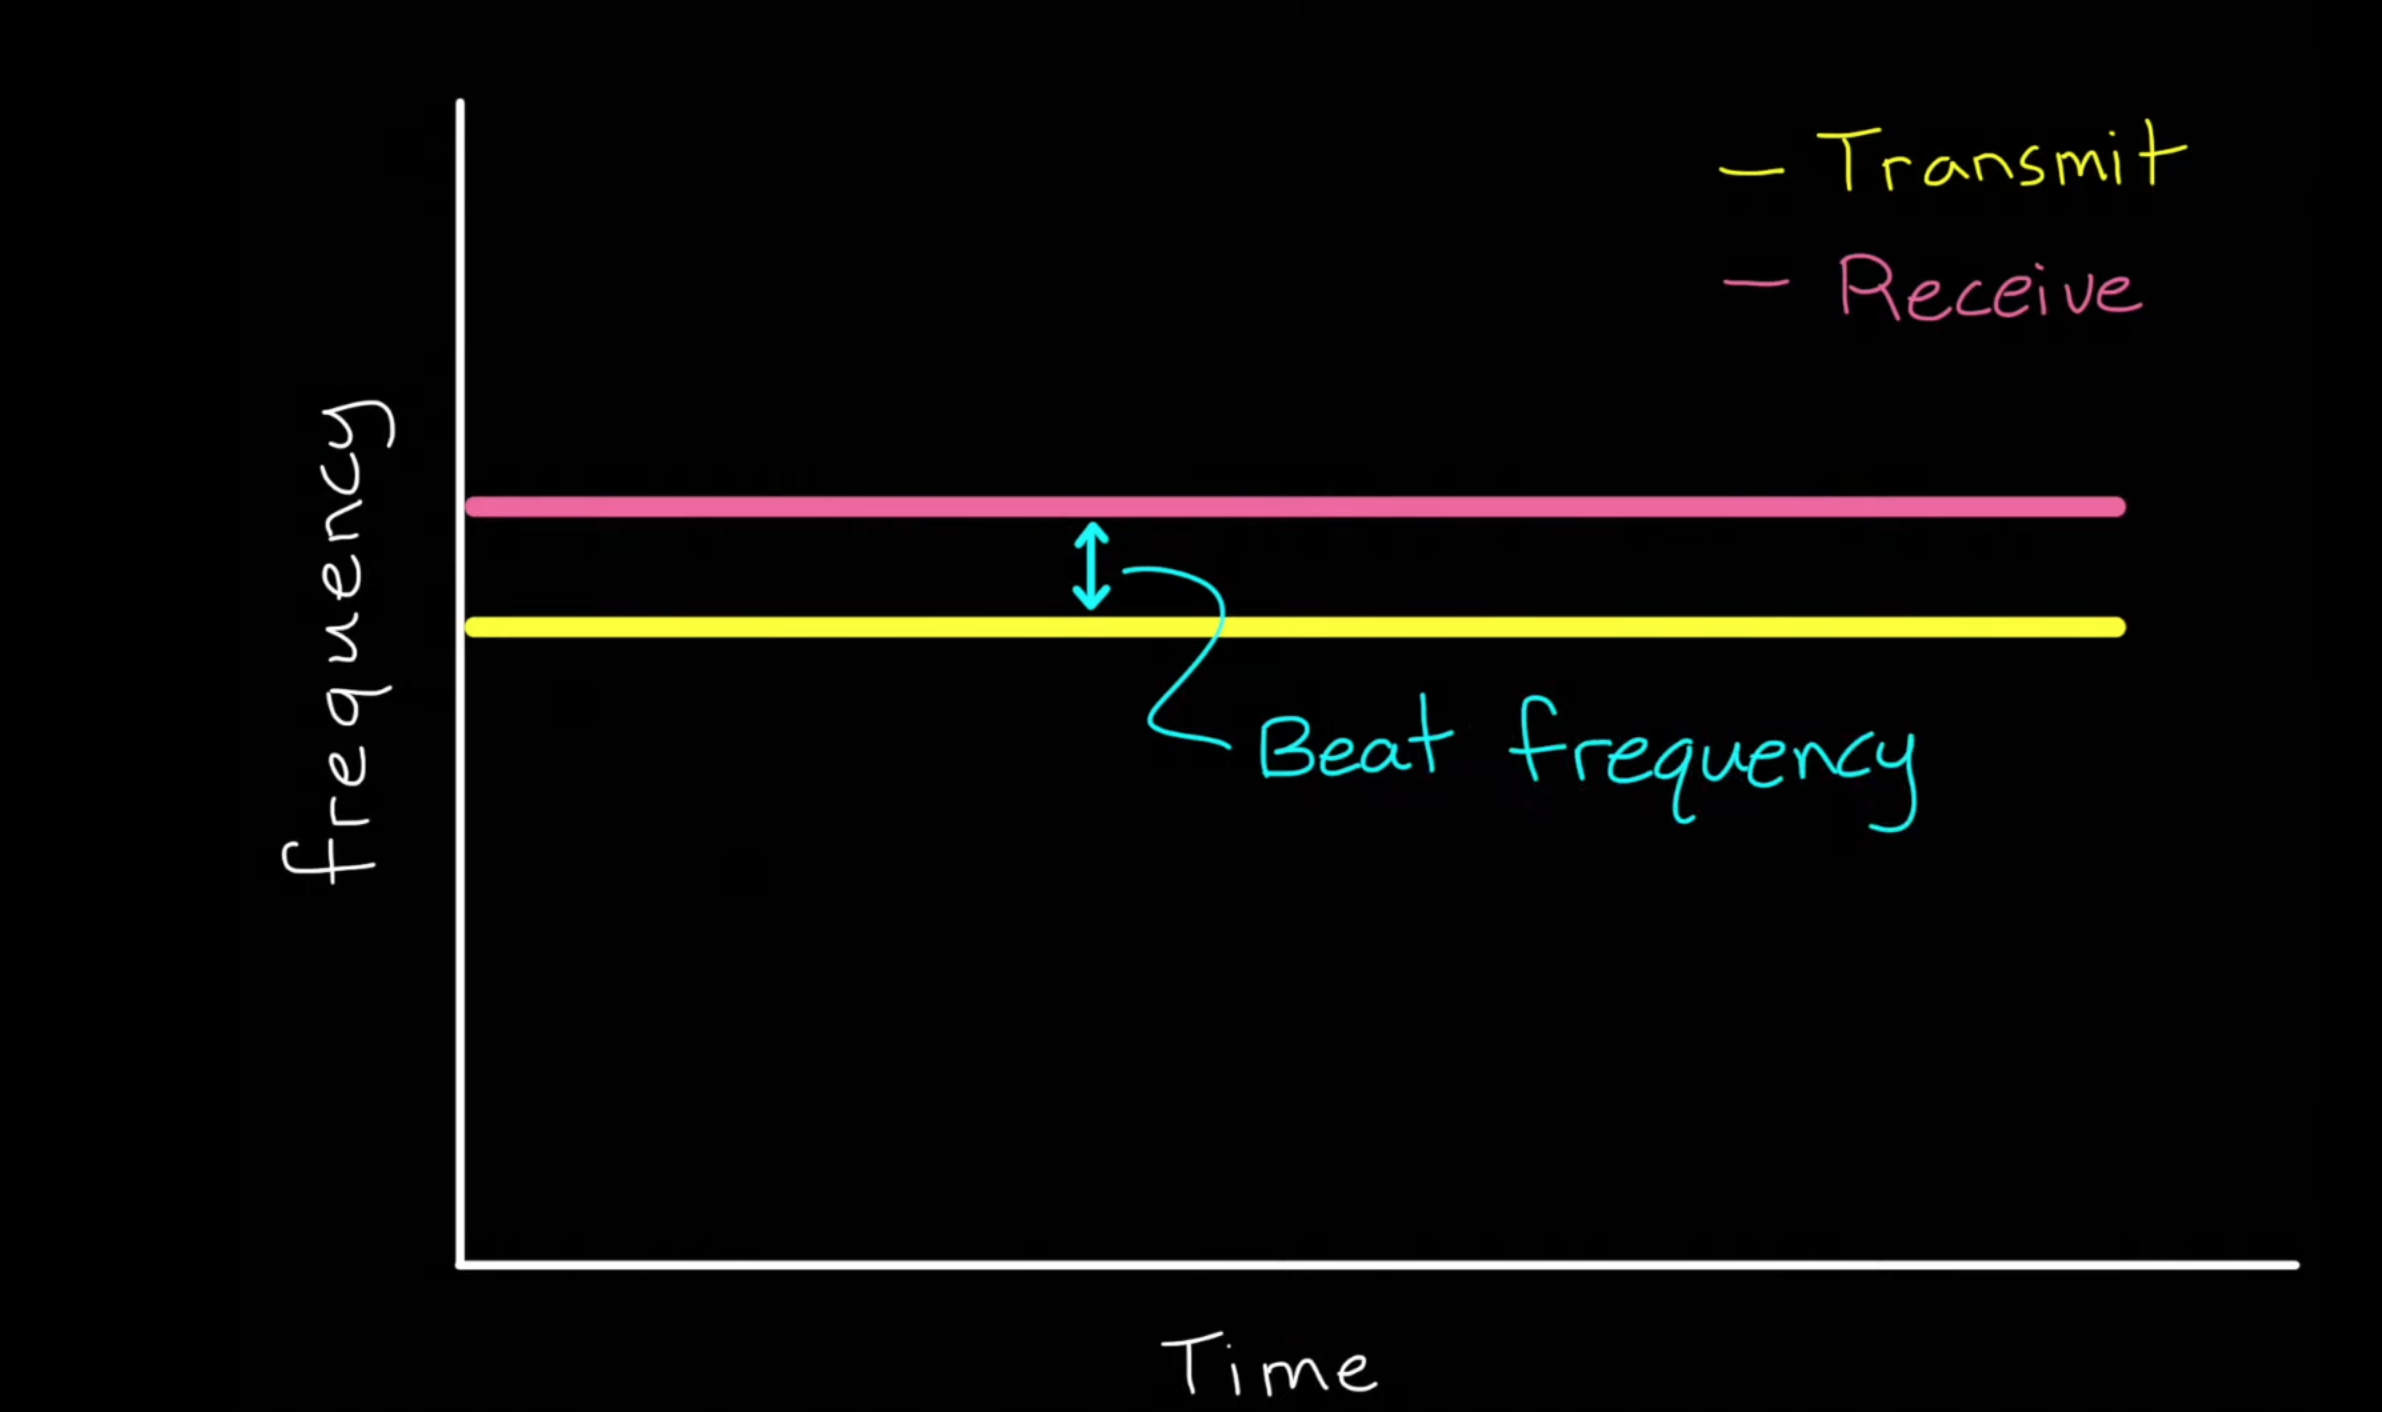 — Transmit
— Receive
frequency
Beat frequency
Time